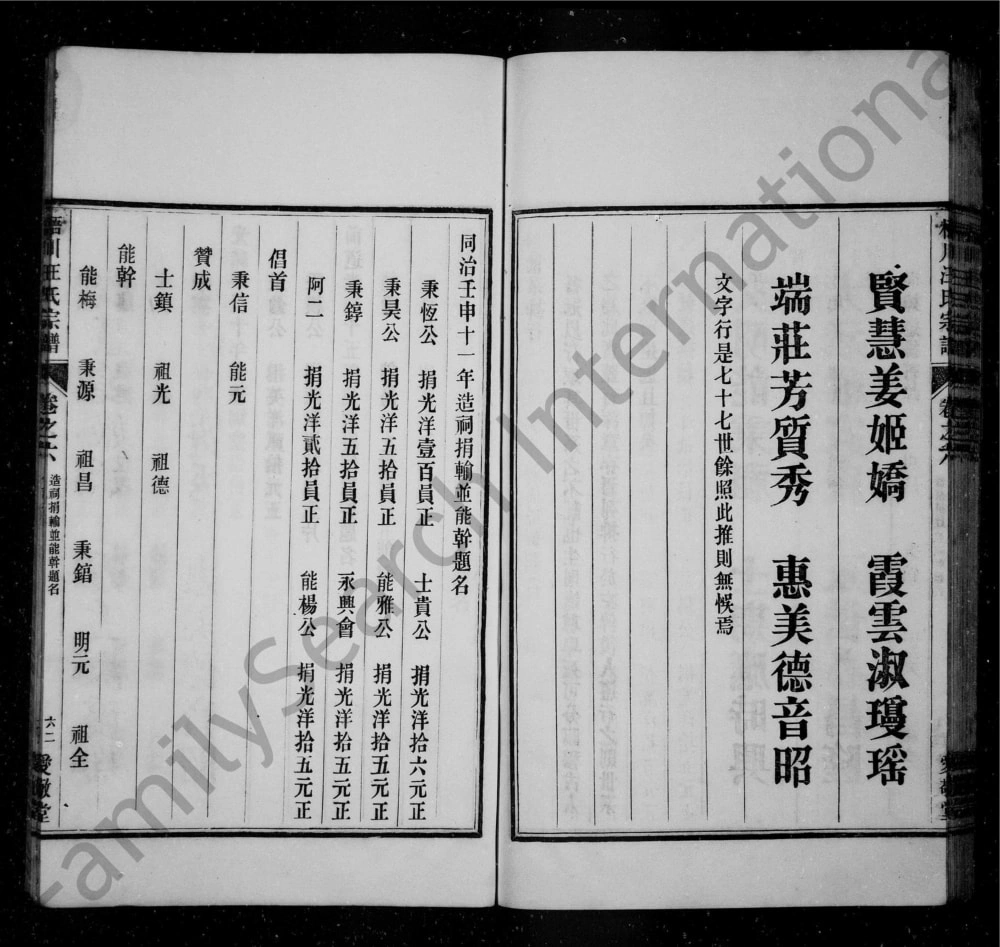 賢慧姜姬嬌　霞雲淑瓊瑤
端莊芳質秀　惠美德音昭
文字行是七十七世餘照此推則無悞焉
同治壬申十一年造祠捐輸並能幹題名
秉恆公　捐光洋壹百員正　士貴公　捐光洋拾六元正
秉昊公　捐光洋五拾員正　能雅公　捐光洋拾五元正
秉錞公　捐光洋五拾員正　永興會　捐光洋拾五元正
阿二公　捐光洋貳拾員正　能楊公　捐光洋拾五元正
倡首
秉信　能元
贊成
士鎮　祖光　祖德
能幹
能梅　秉源　祖昌　秉鎬　明元　祖全
川汪氏宗譜　卷之六　造祠捐輸並能幹題名　六二　愛敬堂
FamilySearch International